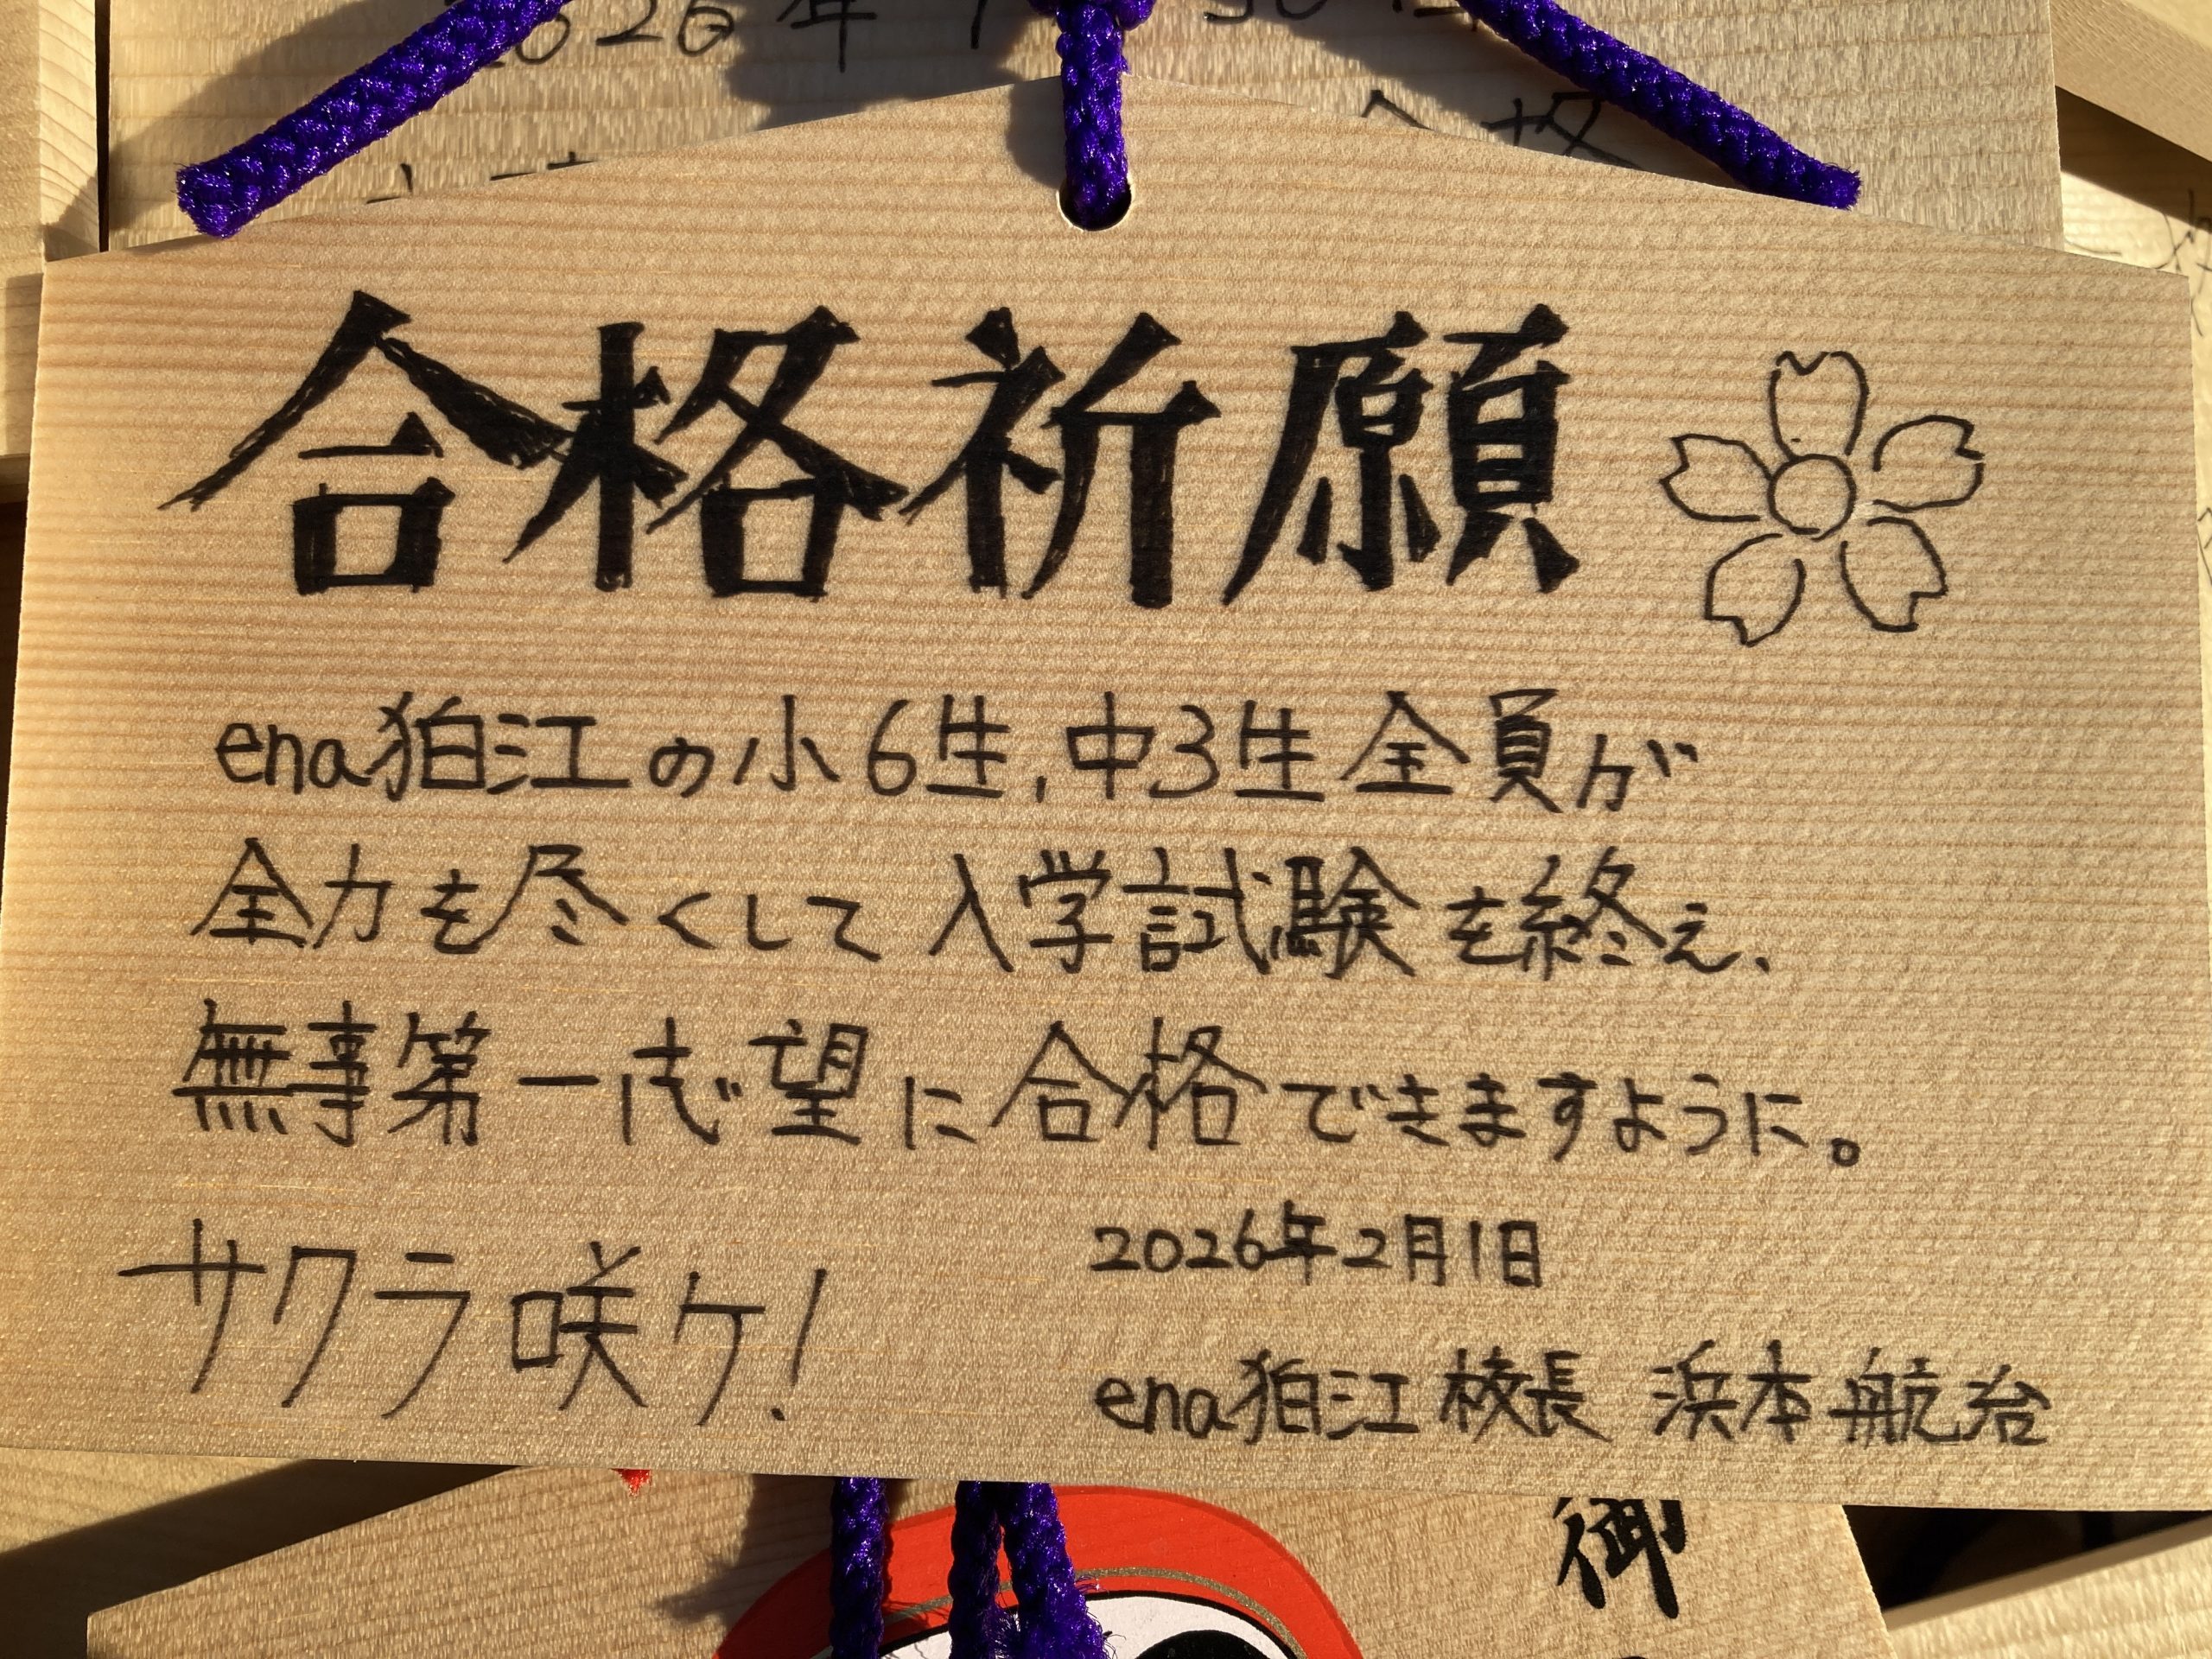 2026年1
合格
合格祈願
ena狛江の小6生,中3生全員が
全力を尽くして入学試験を終え、
無事第一志望に合格できますように。
サクラ咲ケ!
2026年2月1日
ena狛江校長 浜本航治
御